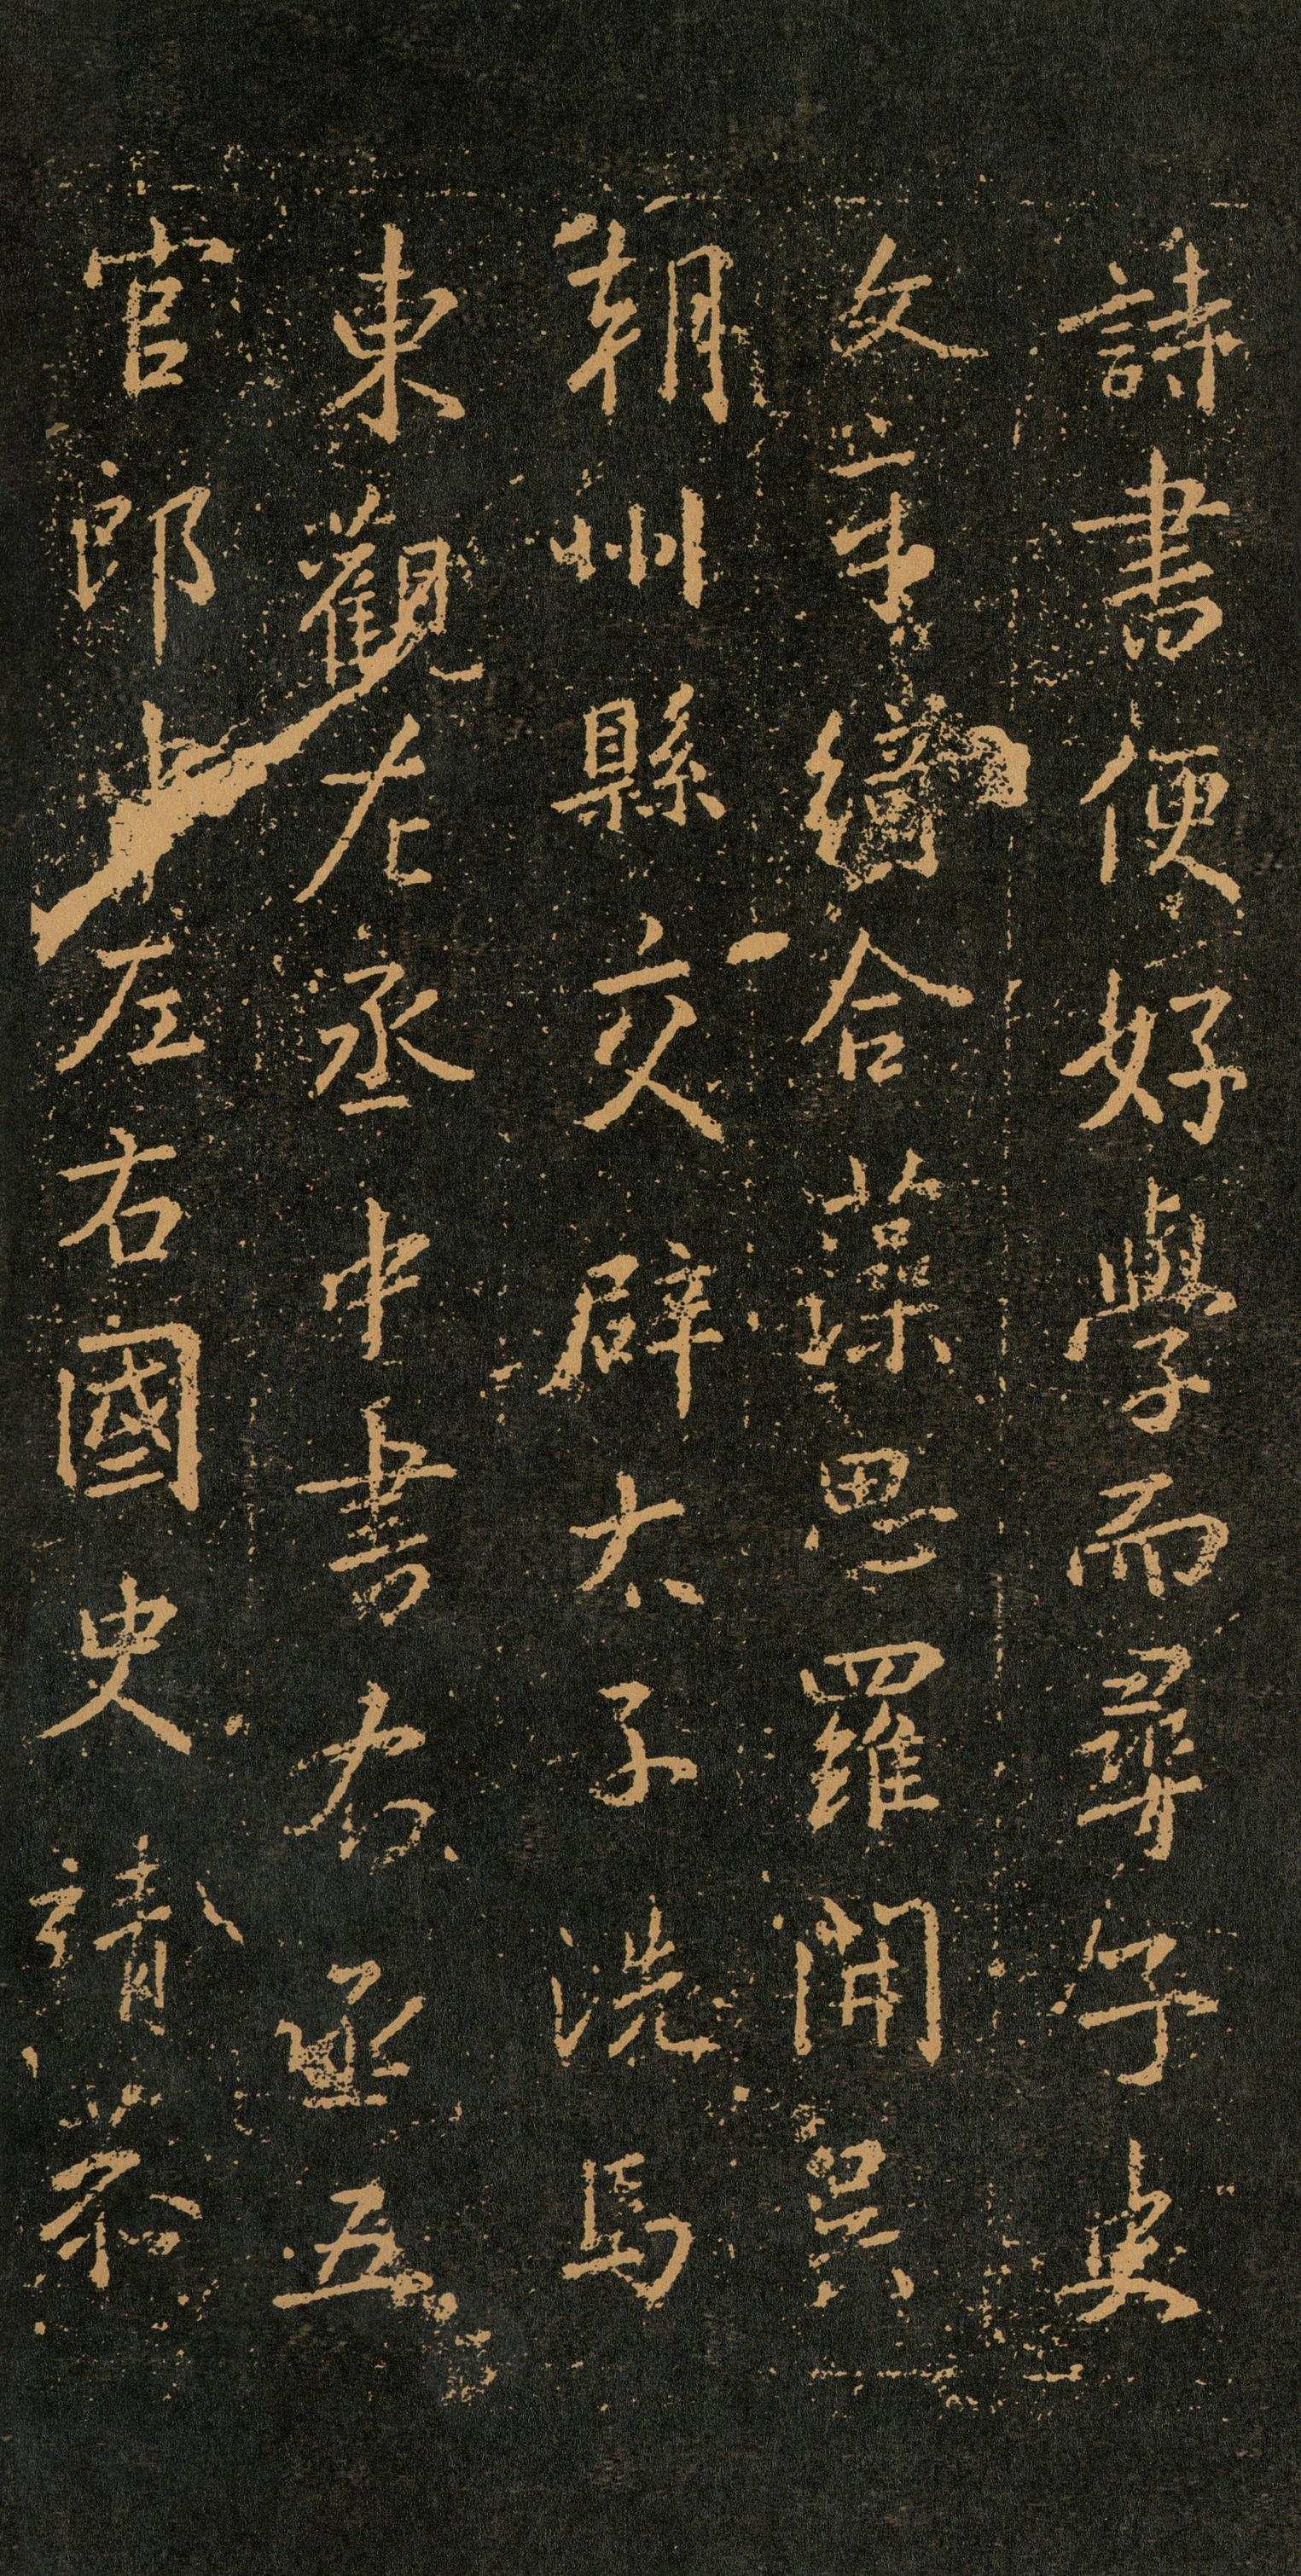 詩書便好學而尋子史
文章綺合藻思羅開
朝州縣交辟太子洗馬
東觀左丞中書右丞五
官郎左右國史靖恭